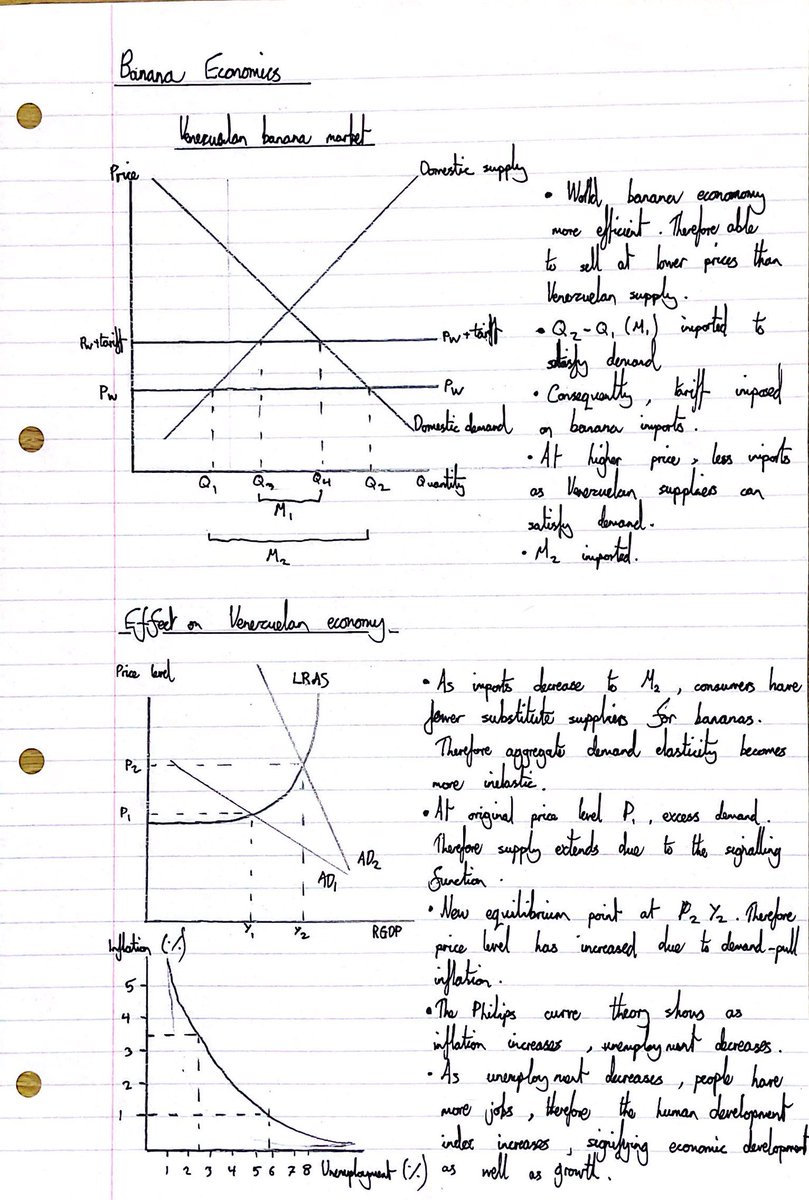 Banana Economics
Venezuelan banana market
Price
Domestic supply
Pw+tariff
Pw+tariff
Pw
Pw
Domestic demand
Q1 Q3 Q4 Q2 Quantity
M1
M2
• World banana econonomy
more efficient. Therefore able
to sell at lower prices than
Venezuelan supply.
• Q2-Q1 (M1) imported to
satisfy demand
• Consequently, tariff imposed
on banana imports.
• At higher price, less imports
as Venezuelan suppliers can
satisfy demand.
• M2 imported.
Effect on Venezuelan economy
Price level
LRAS
P2
P1
AD2
AD1
Y1 Y2 RGDP
• As imports decrease to M2, consumers have
fewer substitute suppliers for bananas.
Therefore aggregate demand elasticity becomes
more inelastic.
• At original price level P1, excess demand.
Therefore supply extends due to the signalling
function.
• New equilibrium point at P2 Y2. Therefore
price level has increased due to demand-pull
inflation.
• The Philips curve theory shows as
inflation increases, unemployment decreases.
• As unemployment decreases, people have
more jobs, therefore the human development
index increases, signifying economic development
as well as growth.
Inflation (%)
5
4
3
2
1
1 2 3 4 5 6 7 8 Unemployment (%)